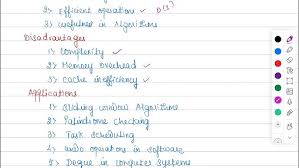 2) Efficient operation ✓ O(1)
3) Usefulness in Algorithms
Disadvantages
1) Complexity ✓
2) Memory overhead ✓
3) Cache inefficiency ✓
Applications
1) Sliding window Algorithms
2) Palindrome checking
3) Task scheduling
4) undo operations in software
5) Deque in computer systems